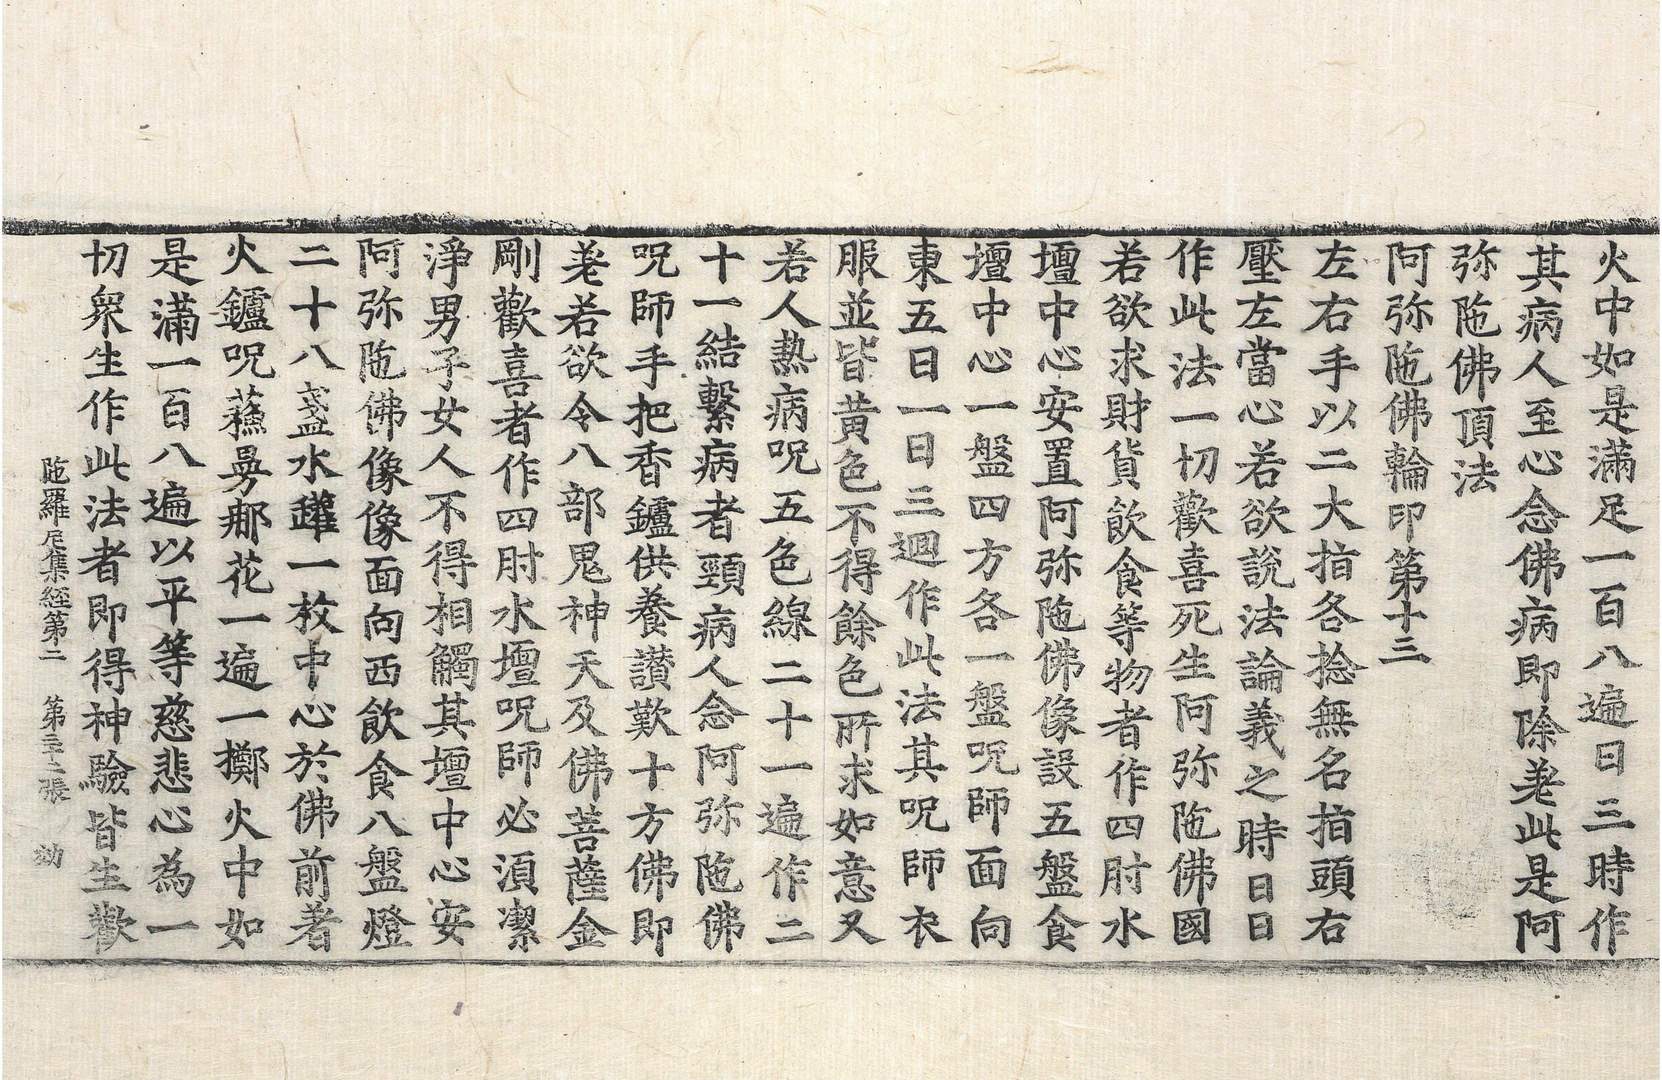 火中如是滿足一百八遍日三時作
其病人至心念佛病即除差此是阿
弥陁佛頂法
阿弥陁佛輪印第十三
左右手以二大指各捻無名指頭右
壓左當心若欲說法論義之時日日
作此法一切歡喜死生阿弥陁佛國
若欲求財貨飲食等物者作四肘水
壇中心安置阿弥陁佛像設五盤食
壇中心一盤四方各一盤呪師面向
東五日一日三迴作此法其呪師衣
服並皆黄色不得餘色所求如意又
若人熱病呪五色線二十一遍作二
十一結繫病者頸病人念阿弥陁佛
呪師手把香鑪供養讃歎十方佛即
差若欲令八部鬼神天及佛菩薩金
剛歡喜者作四肘水壇呪師必須潔
淨男子女人不得相觸其壇中心安
阿弥陁佛像像面向西飲食八盤燈
二十八盞水鑵一枚中心於佛前著
火鑪呪蘓曼那花一遍一擲火中如
是滿一百八遍以平等慈悲心為一
切衆生作此法者即得神驗皆生歡
陁羅尼集經第二 第三十二張